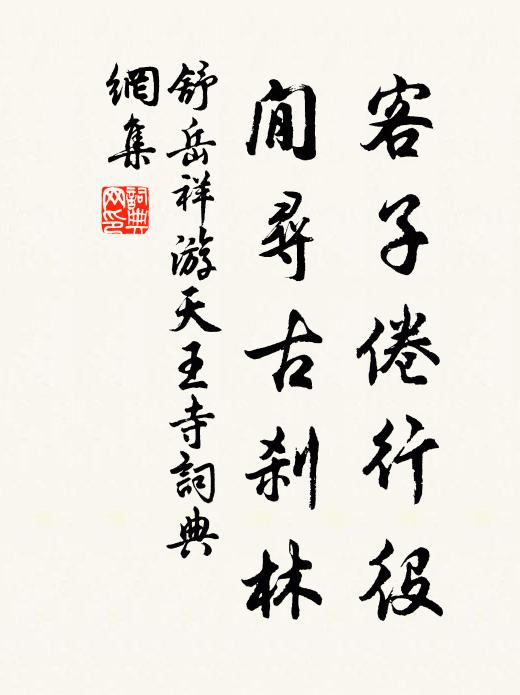 客子倦行役
閒尋古刹林
舒岳祥游天王寺詞典
網集
詞典
网印